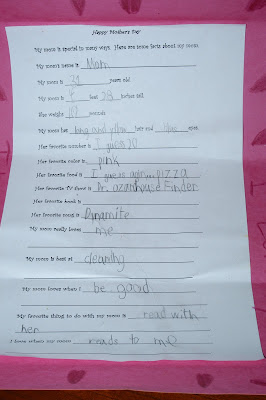 Happy Mothers Day
My mom is special in many ways. Here are some facts about my mom.
My mom's name is Mom
My mom is 31 years old
My mom is 4 feet 28 inches tall
She weighs pounds
My mom has long and yellow hair and blue eyes
Her favorite number is I guess 20
Her favorite color is pink
Her favorite food is I guess again...pizza
Her favorite TV show is Dr. oz and house Finder
Her favorite book is
Her favorite song is Dinamite
My mom really loves me
My mom is best at cleaning
My mom loves when I be good
My favorite thing to do with my mom is read with
her
I love when my mom reads to me